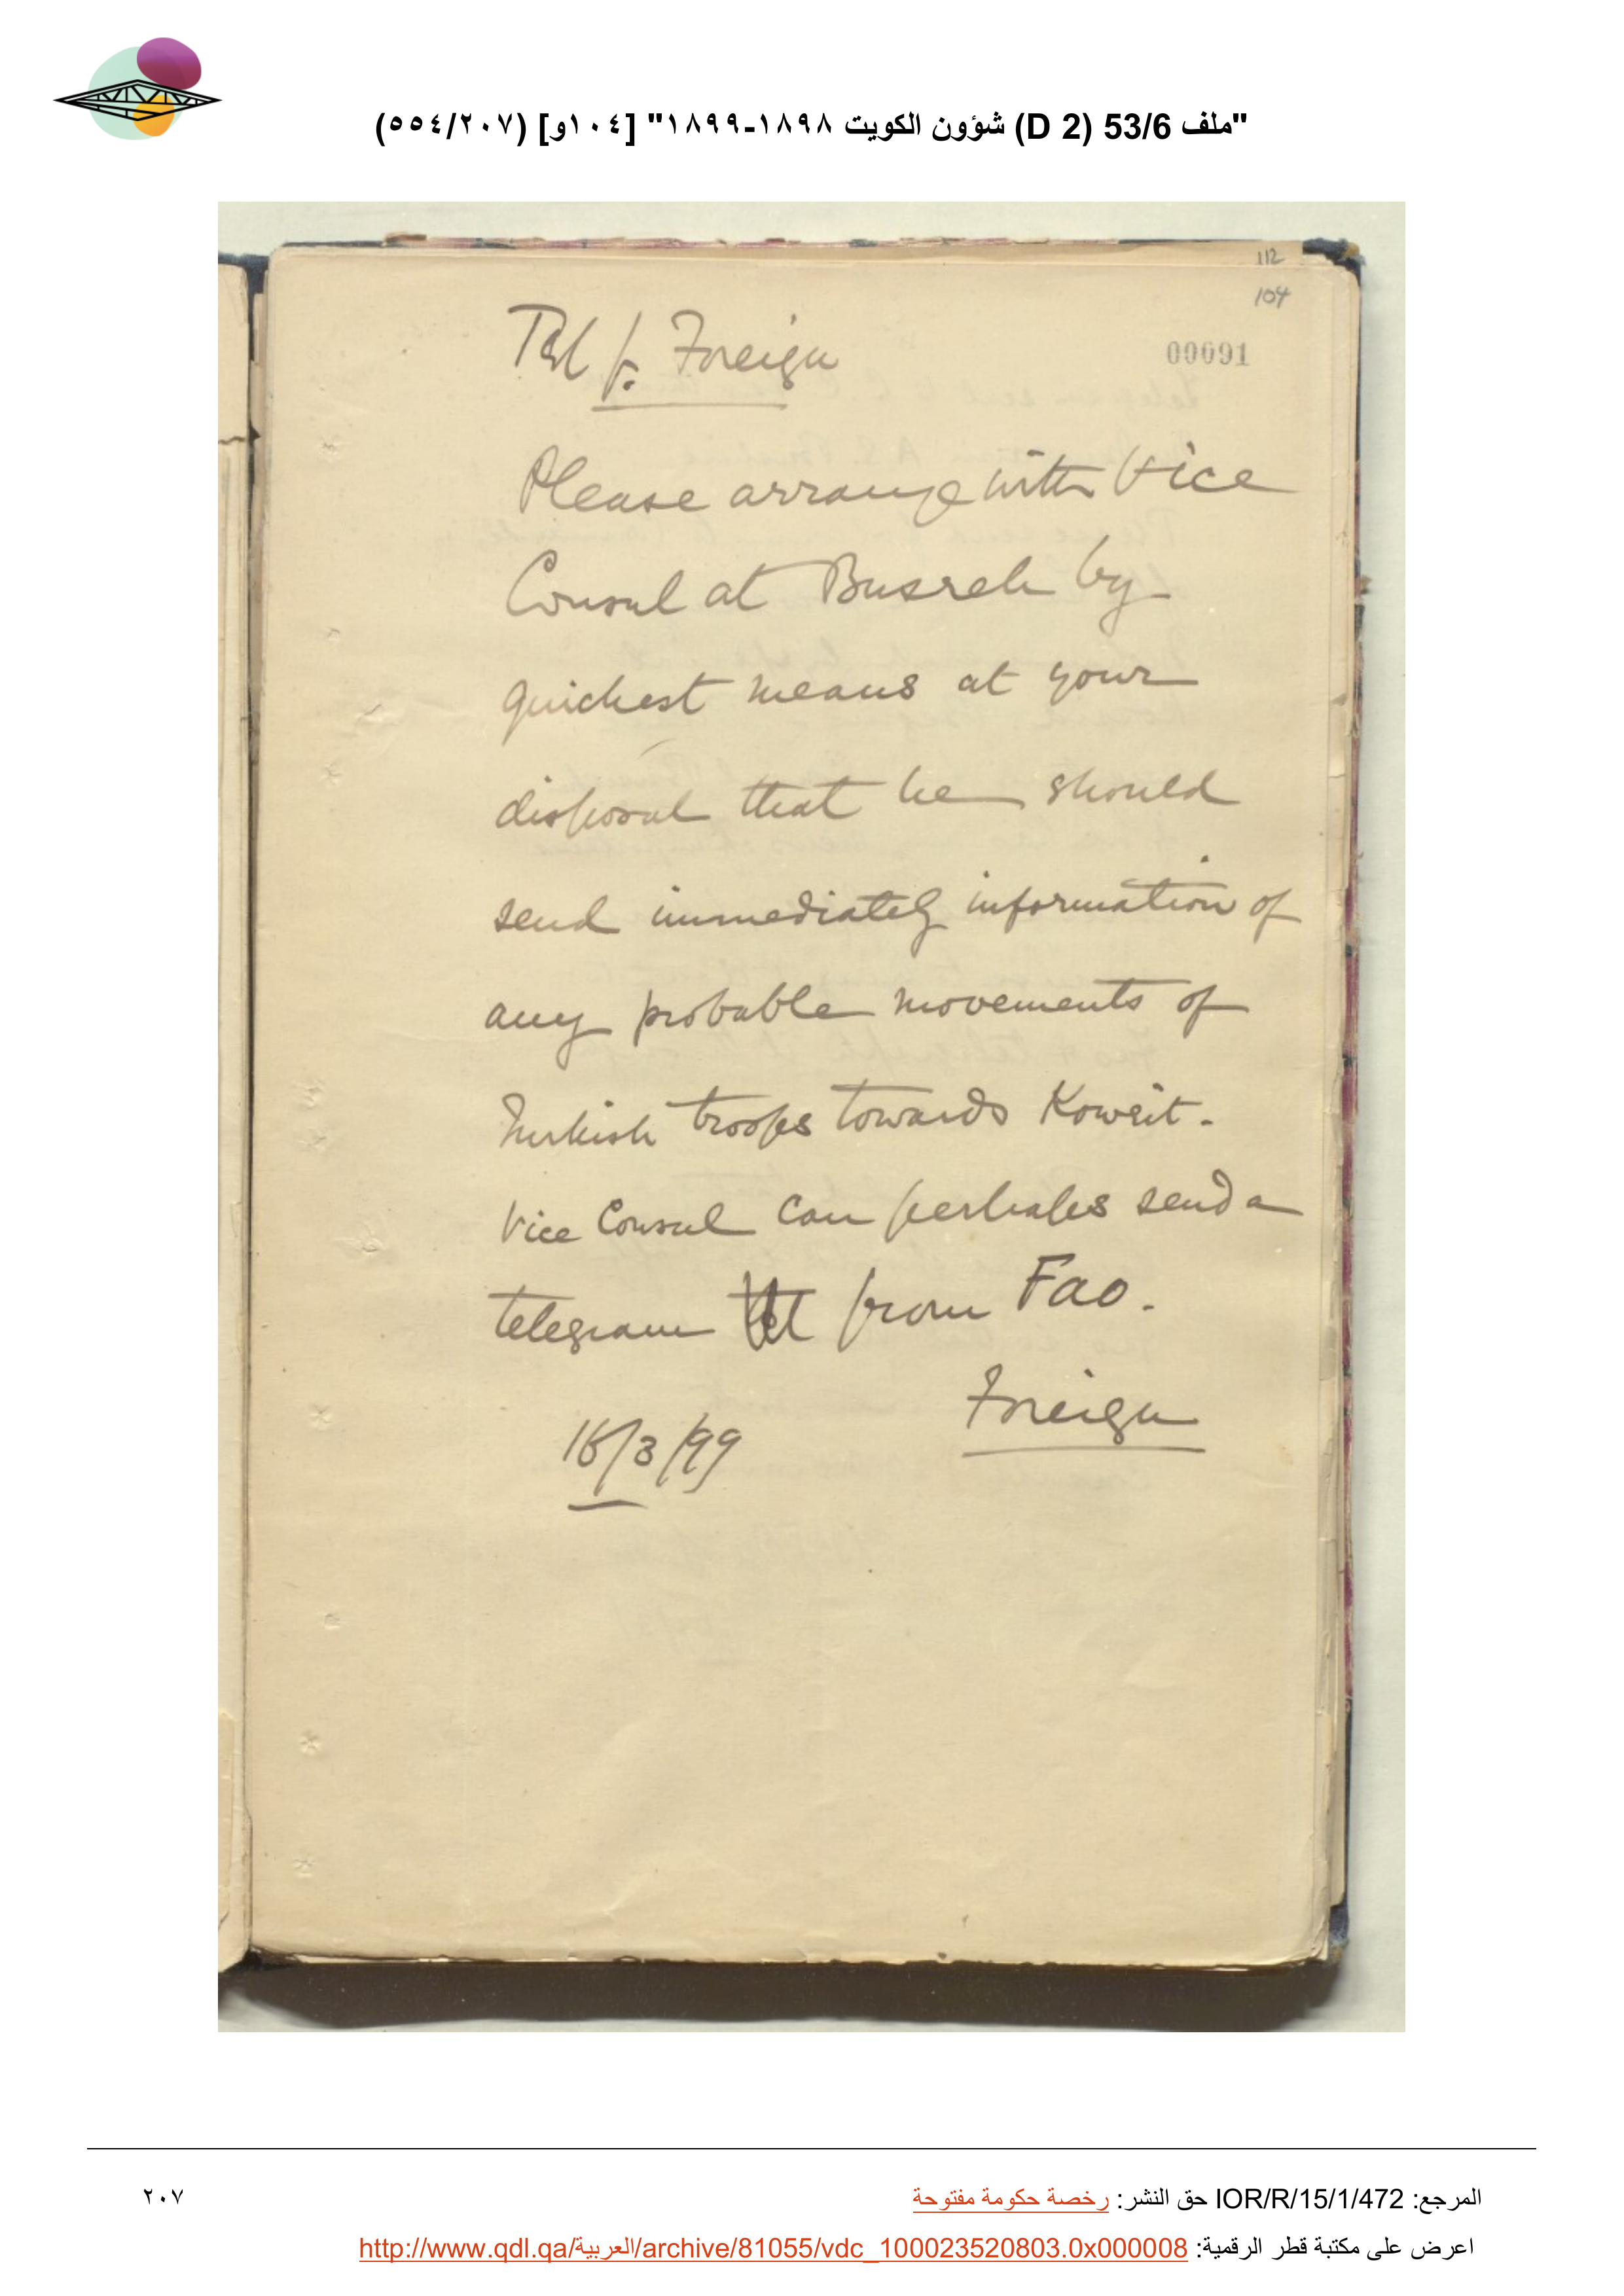 "ملف 53/6 (D 2) شؤون الكويت ١٨٩٨-١٨٩٩" [١٠٤و] (٥٥٤/٢٠٧)
112
104
00091
Tel f. Foreign
Please arrange with Vice
Consul at Busreh by
quickest means at your
disposal that he should
send immediately information of
any probable movements of
Turkish troops towards Koweit.
Vice Consul can perhaps send a
telegram from Fao.
Foreign
/3/99
المرجع: IOR/R/15/1/472 حق النشر: رخصة حكومة مفتوحة
٢٠٧
اعرض على مكتبة قطر الرقمية: http://www.qdl.qa/العربية/archive/81055/vdc_100023520803.0x000008